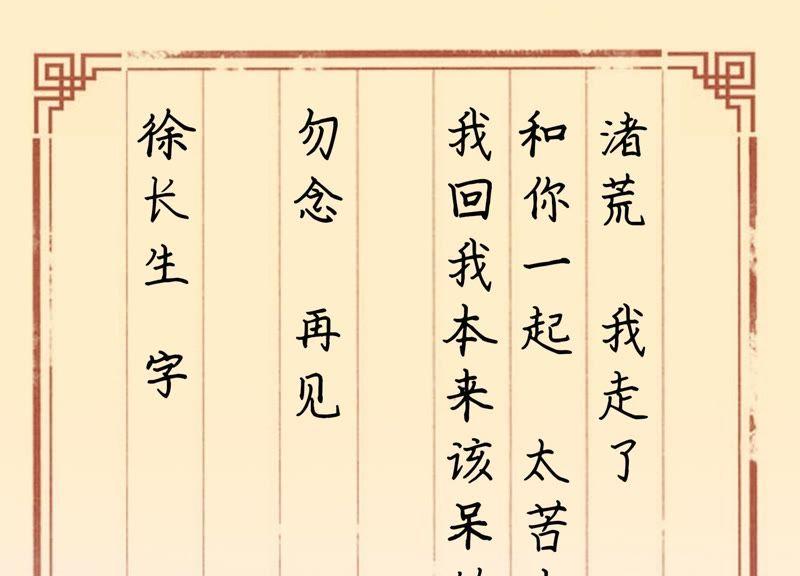 渚荒 我走了
和你一起 太苦
我回我本来该呆
勿念 再见
徐长生 字